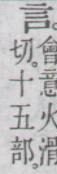 言。
會意火滑
切。十五部。